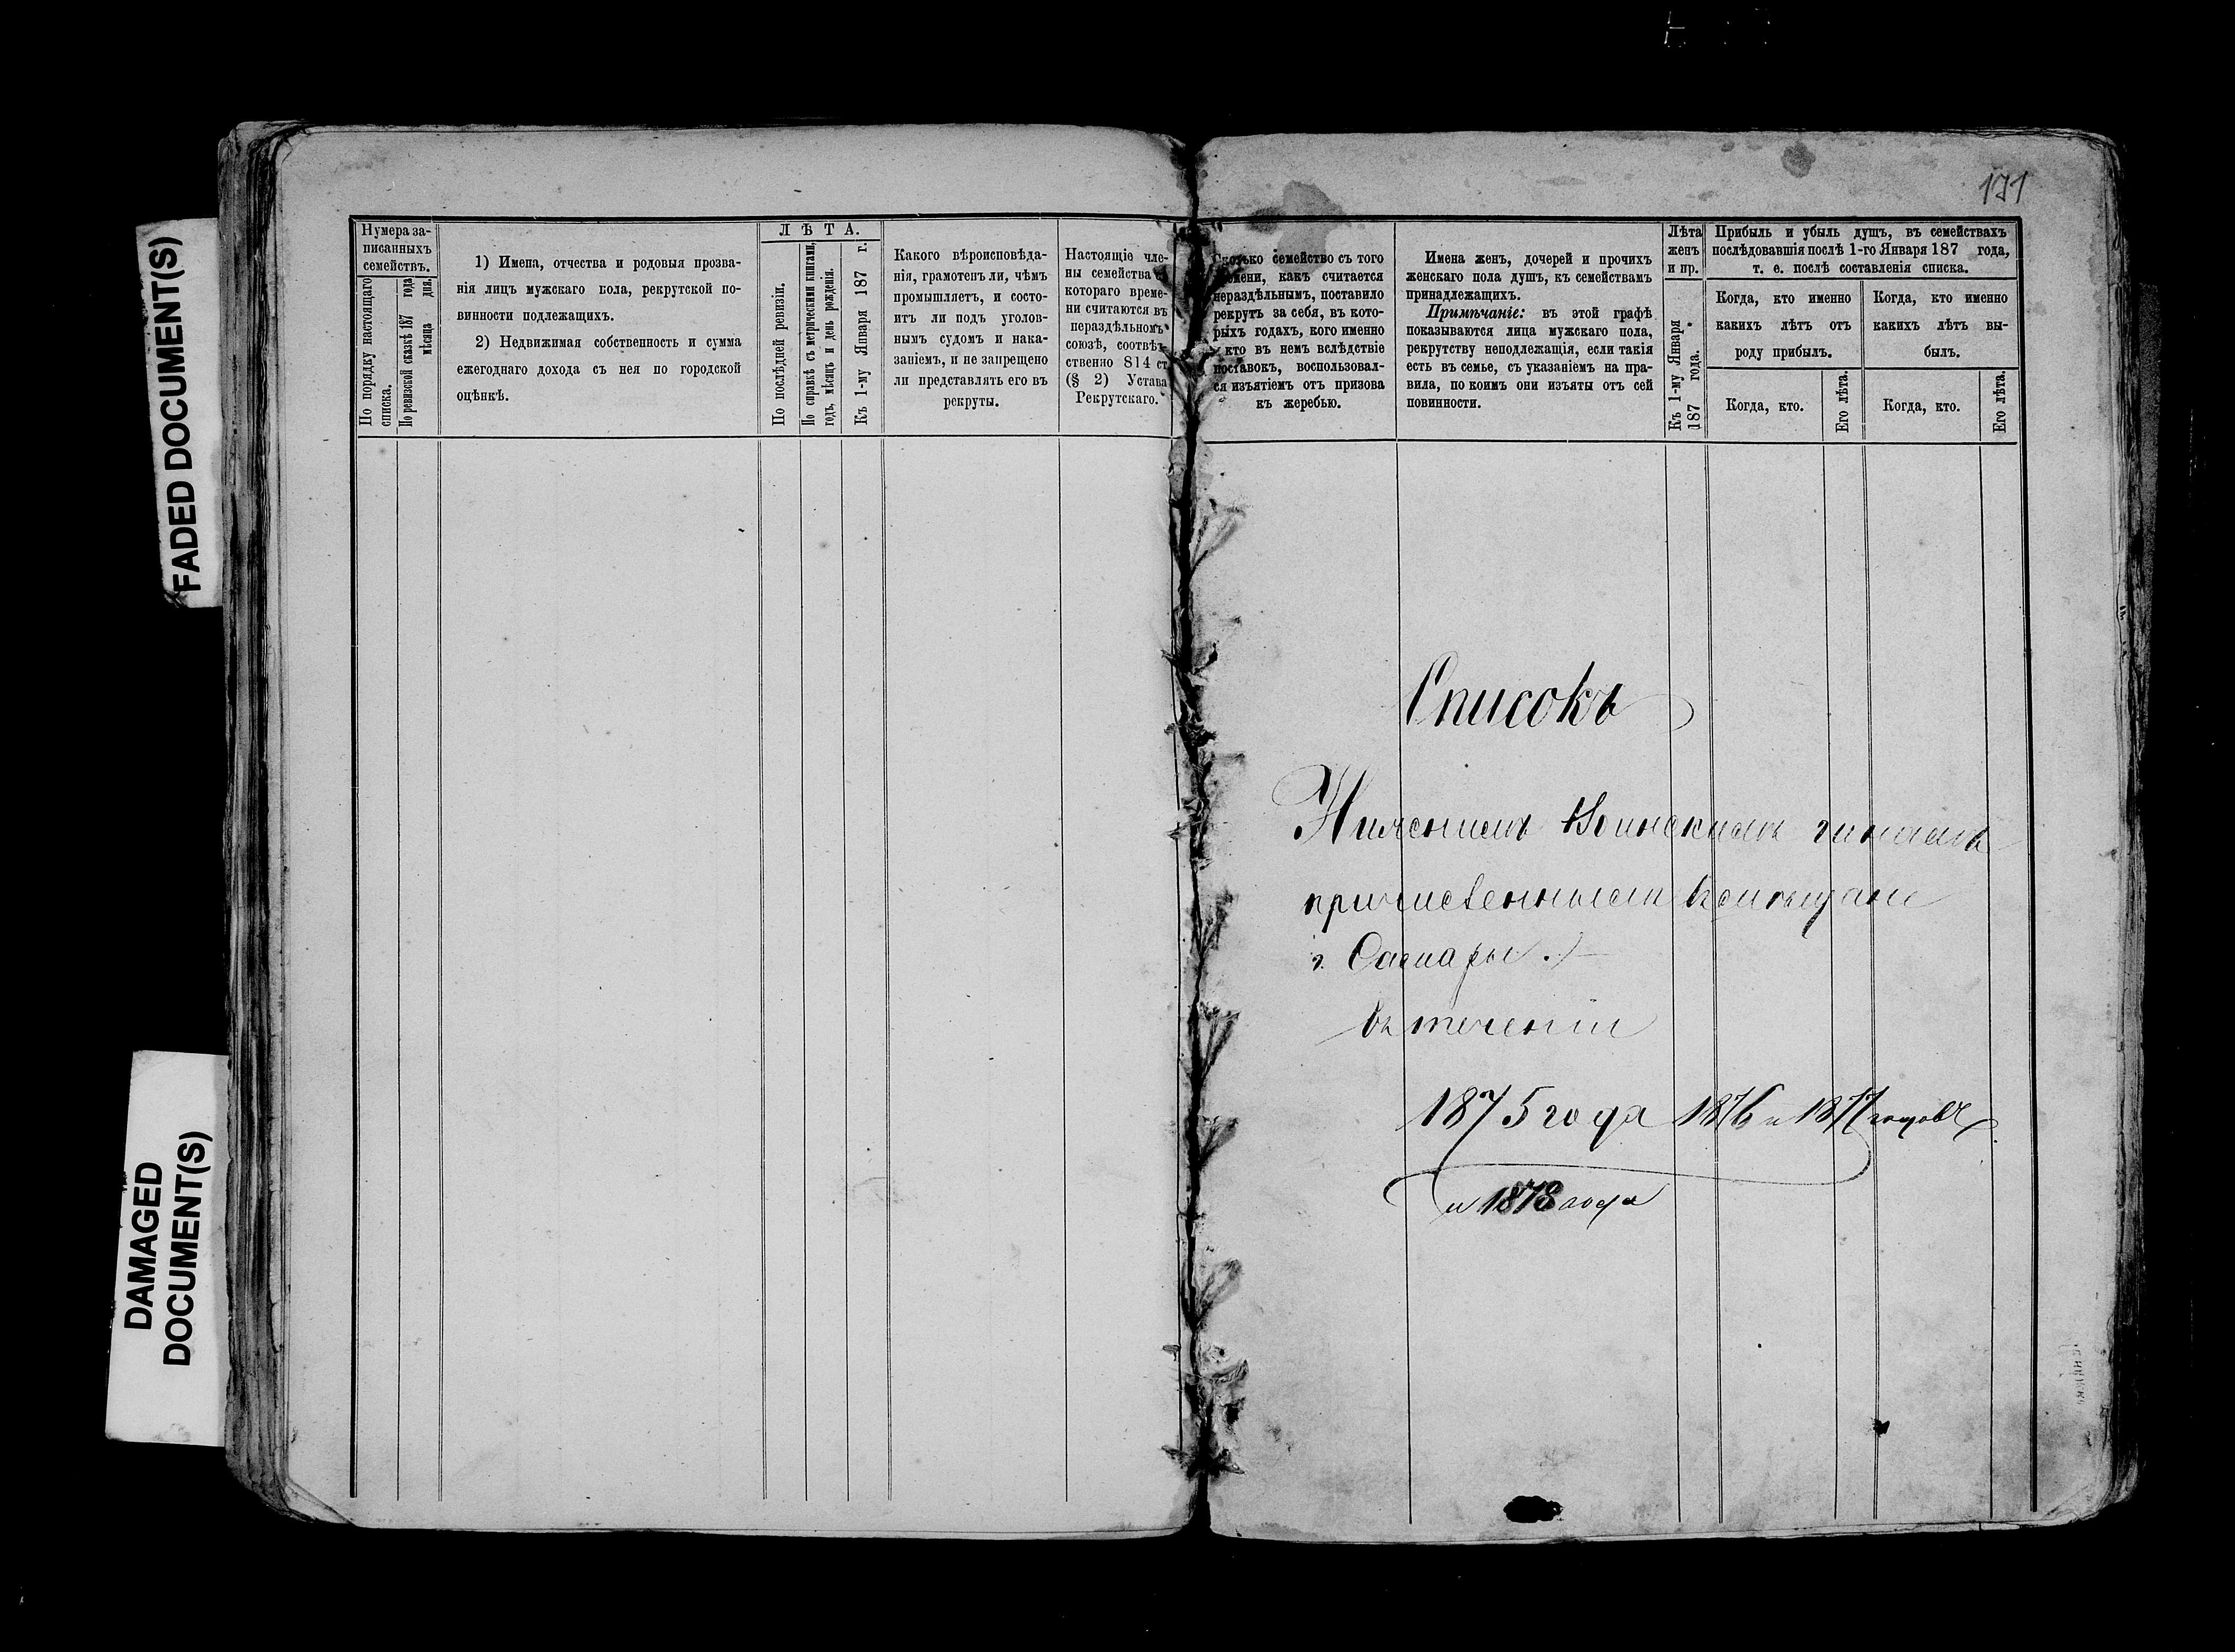 FADED DOCUMENT(S)
DAMAGED
DOCUMENT(S)
Нумера за-
писанныхъ
семействъ.
По порядку настоящаго
списка.
По ревизской сказкѣ 187 года
мѣсяца дня.
1) Имена, отчества и родовыя прозва-
нія лицъ мужскаго пола, рекрутской по-
винности подлежащихъ.
2) Недвижимая собственность и сумма
ежегоднаго дохода съ нея по городской
оцѣнкѣ.
ЛѢТА.
По послѣдней ревизіи.
По справкѣ съ метрическими книгами,
годъ, мѣсяцъ и день рожденія.
Къ 1-му Января 187 г.
Какого вѣроисповѣда-
нія, грамотенъ ли, чѣмъ
промышляетъ, и состо-
итъ ли подъ уголов-
нымъ судомъ и нака-
заніемъ, и не запрещено
ли представлять его въ
рекруты.
Настоящіе чле-
ны семейства съ
котораго време-
ни считаются въ
нераздѣльномъ
союзѣ, соотвѣт-
ственно 814 ст.
(§ 2) Устава
Рекрутскаго.
171
Сколько семейство съ того
времени, какъ считается
нераздѣльнымъ, поставило
рекрутъ за себя, въ кото-
рыхъ годахъ, кого именно
кто въ немъ вслѣдствіе
поставокъ, воспользовал-
ся изъятіемъ отъ призова
къ жеребью.
Имена женъ, дочерей и прочихъ
женскаго пола душъ, къ семействамъ
принадлежащихъ.
Примѣчаніе: въ этой графѣ
показываются лица мужскаго пола,
рекрутству неподлежащія, если такія
есть въ семьѣ, съ указаніемъ на пра-
вила, по коимъ они изъяты отъ сей
повинности.
Лѣта
женъ
и пр.
Къ 1-му Января
187 года.
Прибыль и убыль душъ, въ семействахъ
послѣдовавшія послѣ 1-го Января 187 года,
т. е. послѣ составленія списка.
Когда, кто именно
какихъ лѣтъ отъ
роду прибылъ.
Когда, кто.
Его лѣта.
Когда, кто именно
какихъ лѣтъ вы-
былъ.
Когда, кто.
Его лѣта.
Списокъ
Нижнимъ Воинскимъ чинамъ
причисленнымъ въ мещане
г. Самары.
въ теченіи
1875 года 1876 и 1877 годовъ
и 1878 года